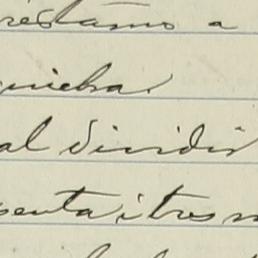 restamo a
quiebra.
al dividir
senta i tres m